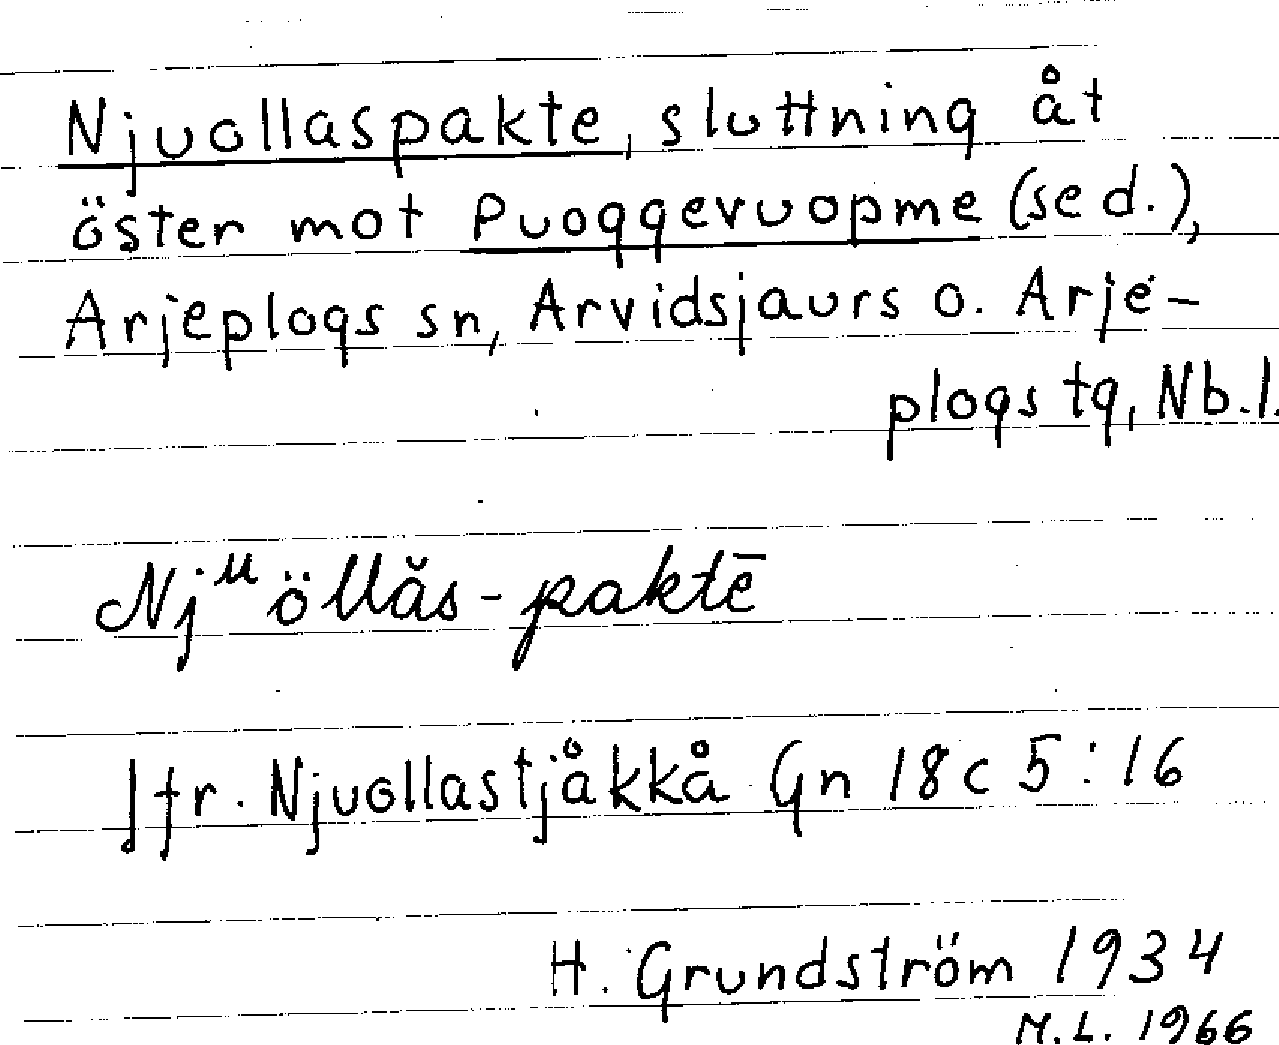 Njuollaspakte, sluttning åt
öster mot Puoggevuopme (se d.),
Arjeplogs sn, Arvidsjaurs o. Arje-
plogs tg, Nb.l.
Njᵘöllăs-paktē
Jfr. Njuollastjåkkå Gn 18c 5:16
H. Grundström 1934
M.L. 1966